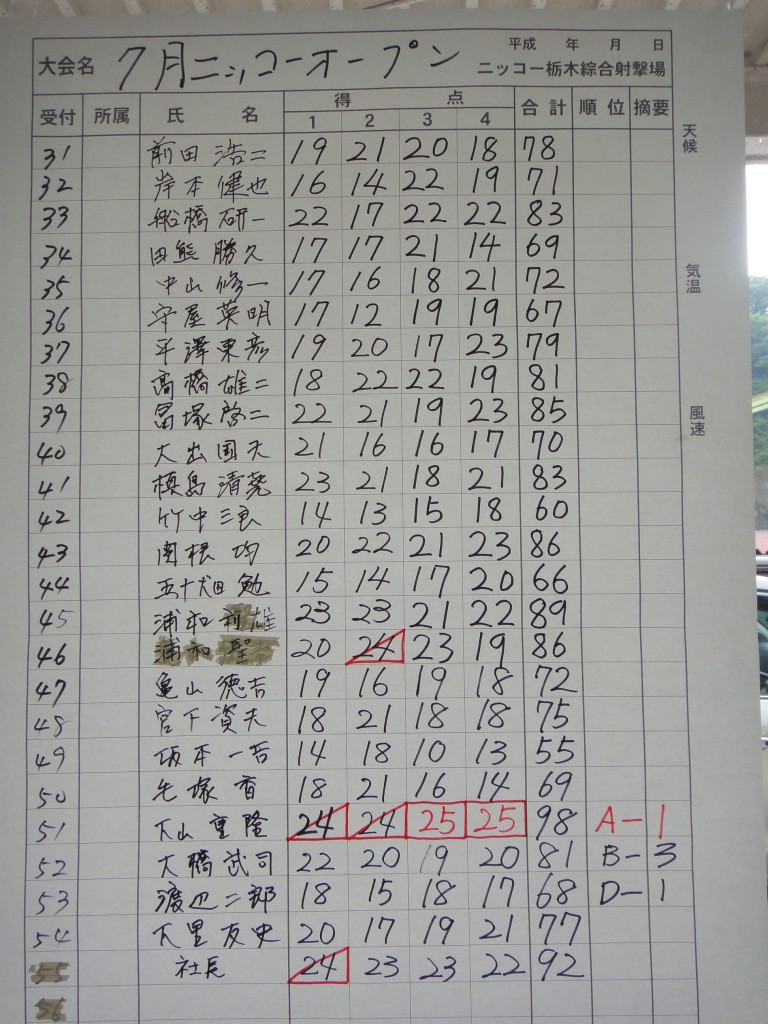 平成 年 月 日
大会名 7月ニッコーオープン ニッコー栃木綜合射撃場
受付 所属 氏名 得点 合計 順位 摘要
1 2 3 4
天候
31 前田 浩二 19 21 20 18 78
32 岸本 健也 16 14 22 19 71
33 船橋 研一 22 17 22 22 83
34 田熊 勝久 17 17 21 14 69
35 中山 修一 17 16 18 21 72
気温
36 守屋 英明 17 12 19 19 67
37 平澤 東彦 19 20 17 23 79
38 高橋 雄二 18 22 22 19 81
39 冨塚 啓二 22 21 19 23 85
風速
40 大出 国夫 21 16 16 17 70
41 槙島 清尭 23 21 18 21 83
42 竹中 三良 14 13 15 18 60
43 関根 均 20 22 21 23 86
44 五十畑 勉 15 14 17 20 66
45 浦和 利雄 23 23 21 22 89
46 浦和 聖 20 24 23 19 86
47 亀山 徳吉 19 16 19 18 72
48 宮下 資夫 18 21 18 18 75
49 坂本 一吾 14 18 10 13 55
50 毛塚 香 18 21 16 14 69
51 大山 重隆 24 24 25 25 98 A-1
52 大橋 武司 22 20 19 20 81 B-3
53 渡辺 二郎 18 15 18 17 68 D-1
54 大里 友史 20 17 19 21 77
55 社長 24 23 23 22 92
56